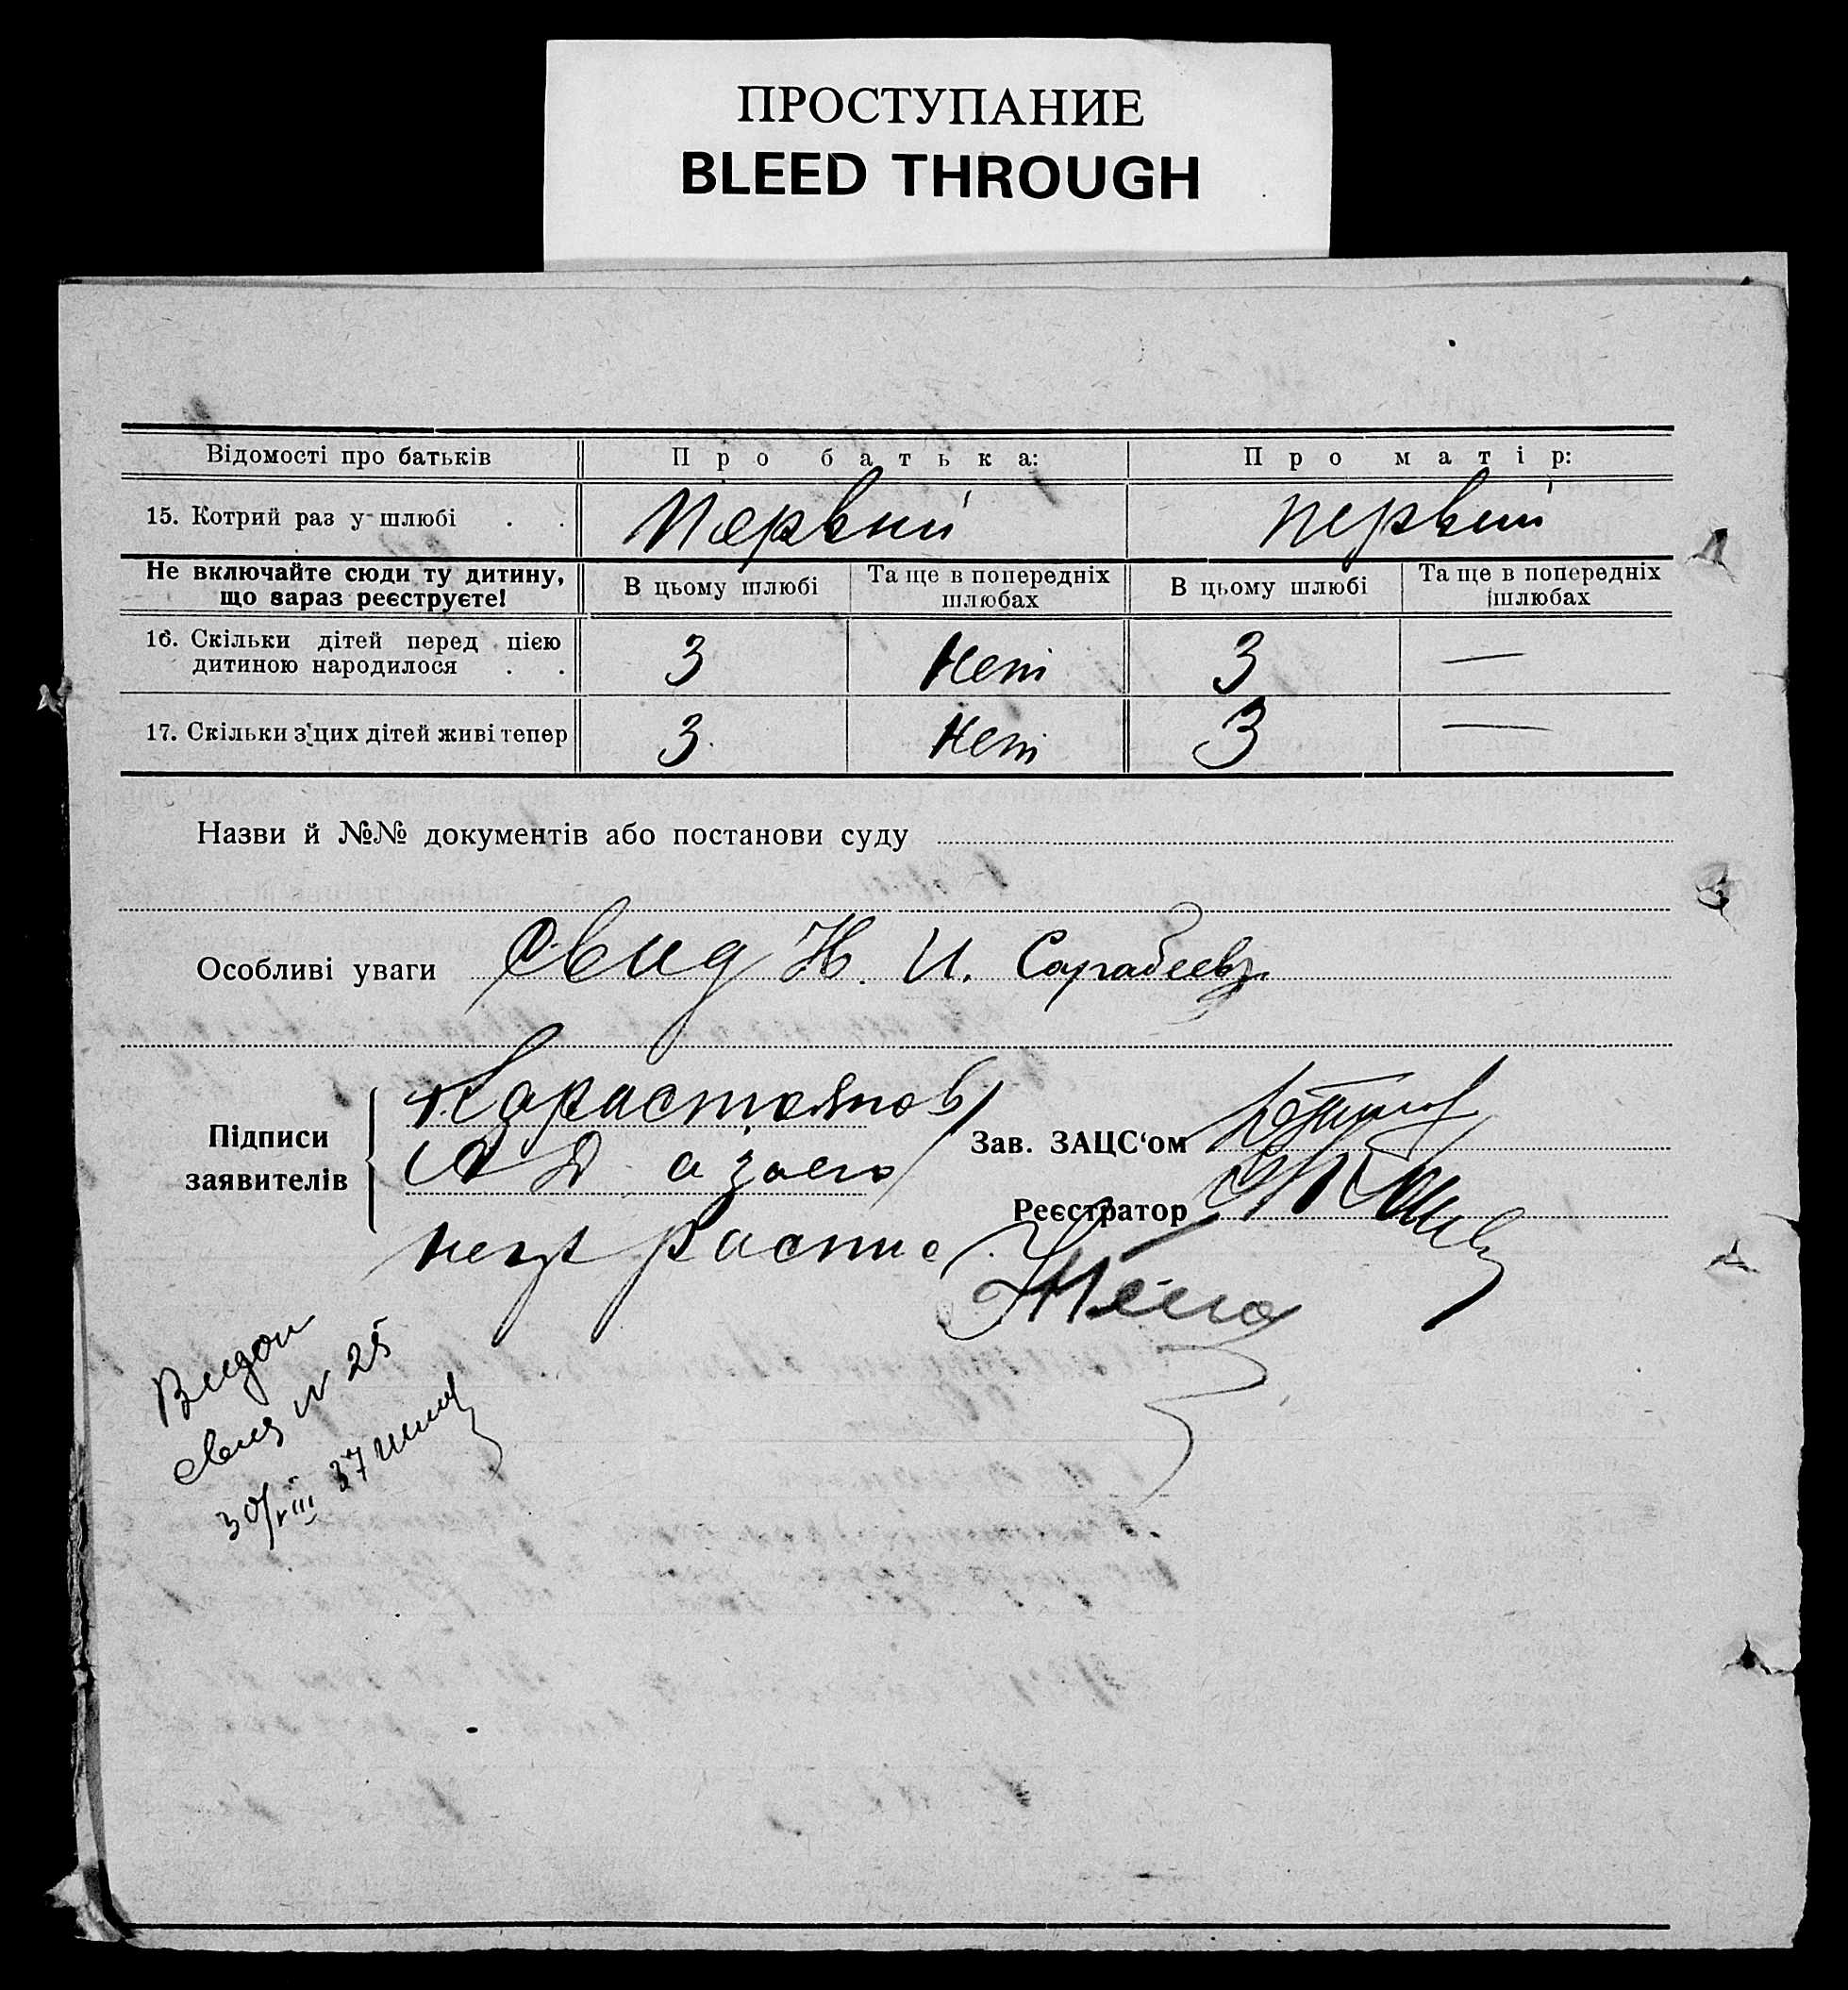 ПРОСТУПАНИЕ
BLEED THROUGH
Відомості про батьків Про батька: Про матір:
15. Котрий раз у шлюбі . . Первый первый
Не включайте сюди ту дитину, що зараз реєструєте! В цьому шлюбі Та ще в попередніх шлюбах В цьому шлюбі Та ще в попередніх шлюбах
16. Скільки дітей перед цією дитиною народилося . . 3 нет 3 —
17. Скільки з цих дітей живі тепер 3 нет 3 —
Назви й №№ документів або постанови суду
Особливі уваги Свид Н. И. Сарабеев
Підписи заявителів
Карастоянов
А Д а за его
негр распис
Зав. ЗАЦС‘ом
Реєстратор
Выдан
свид N 25
30/VIII 37